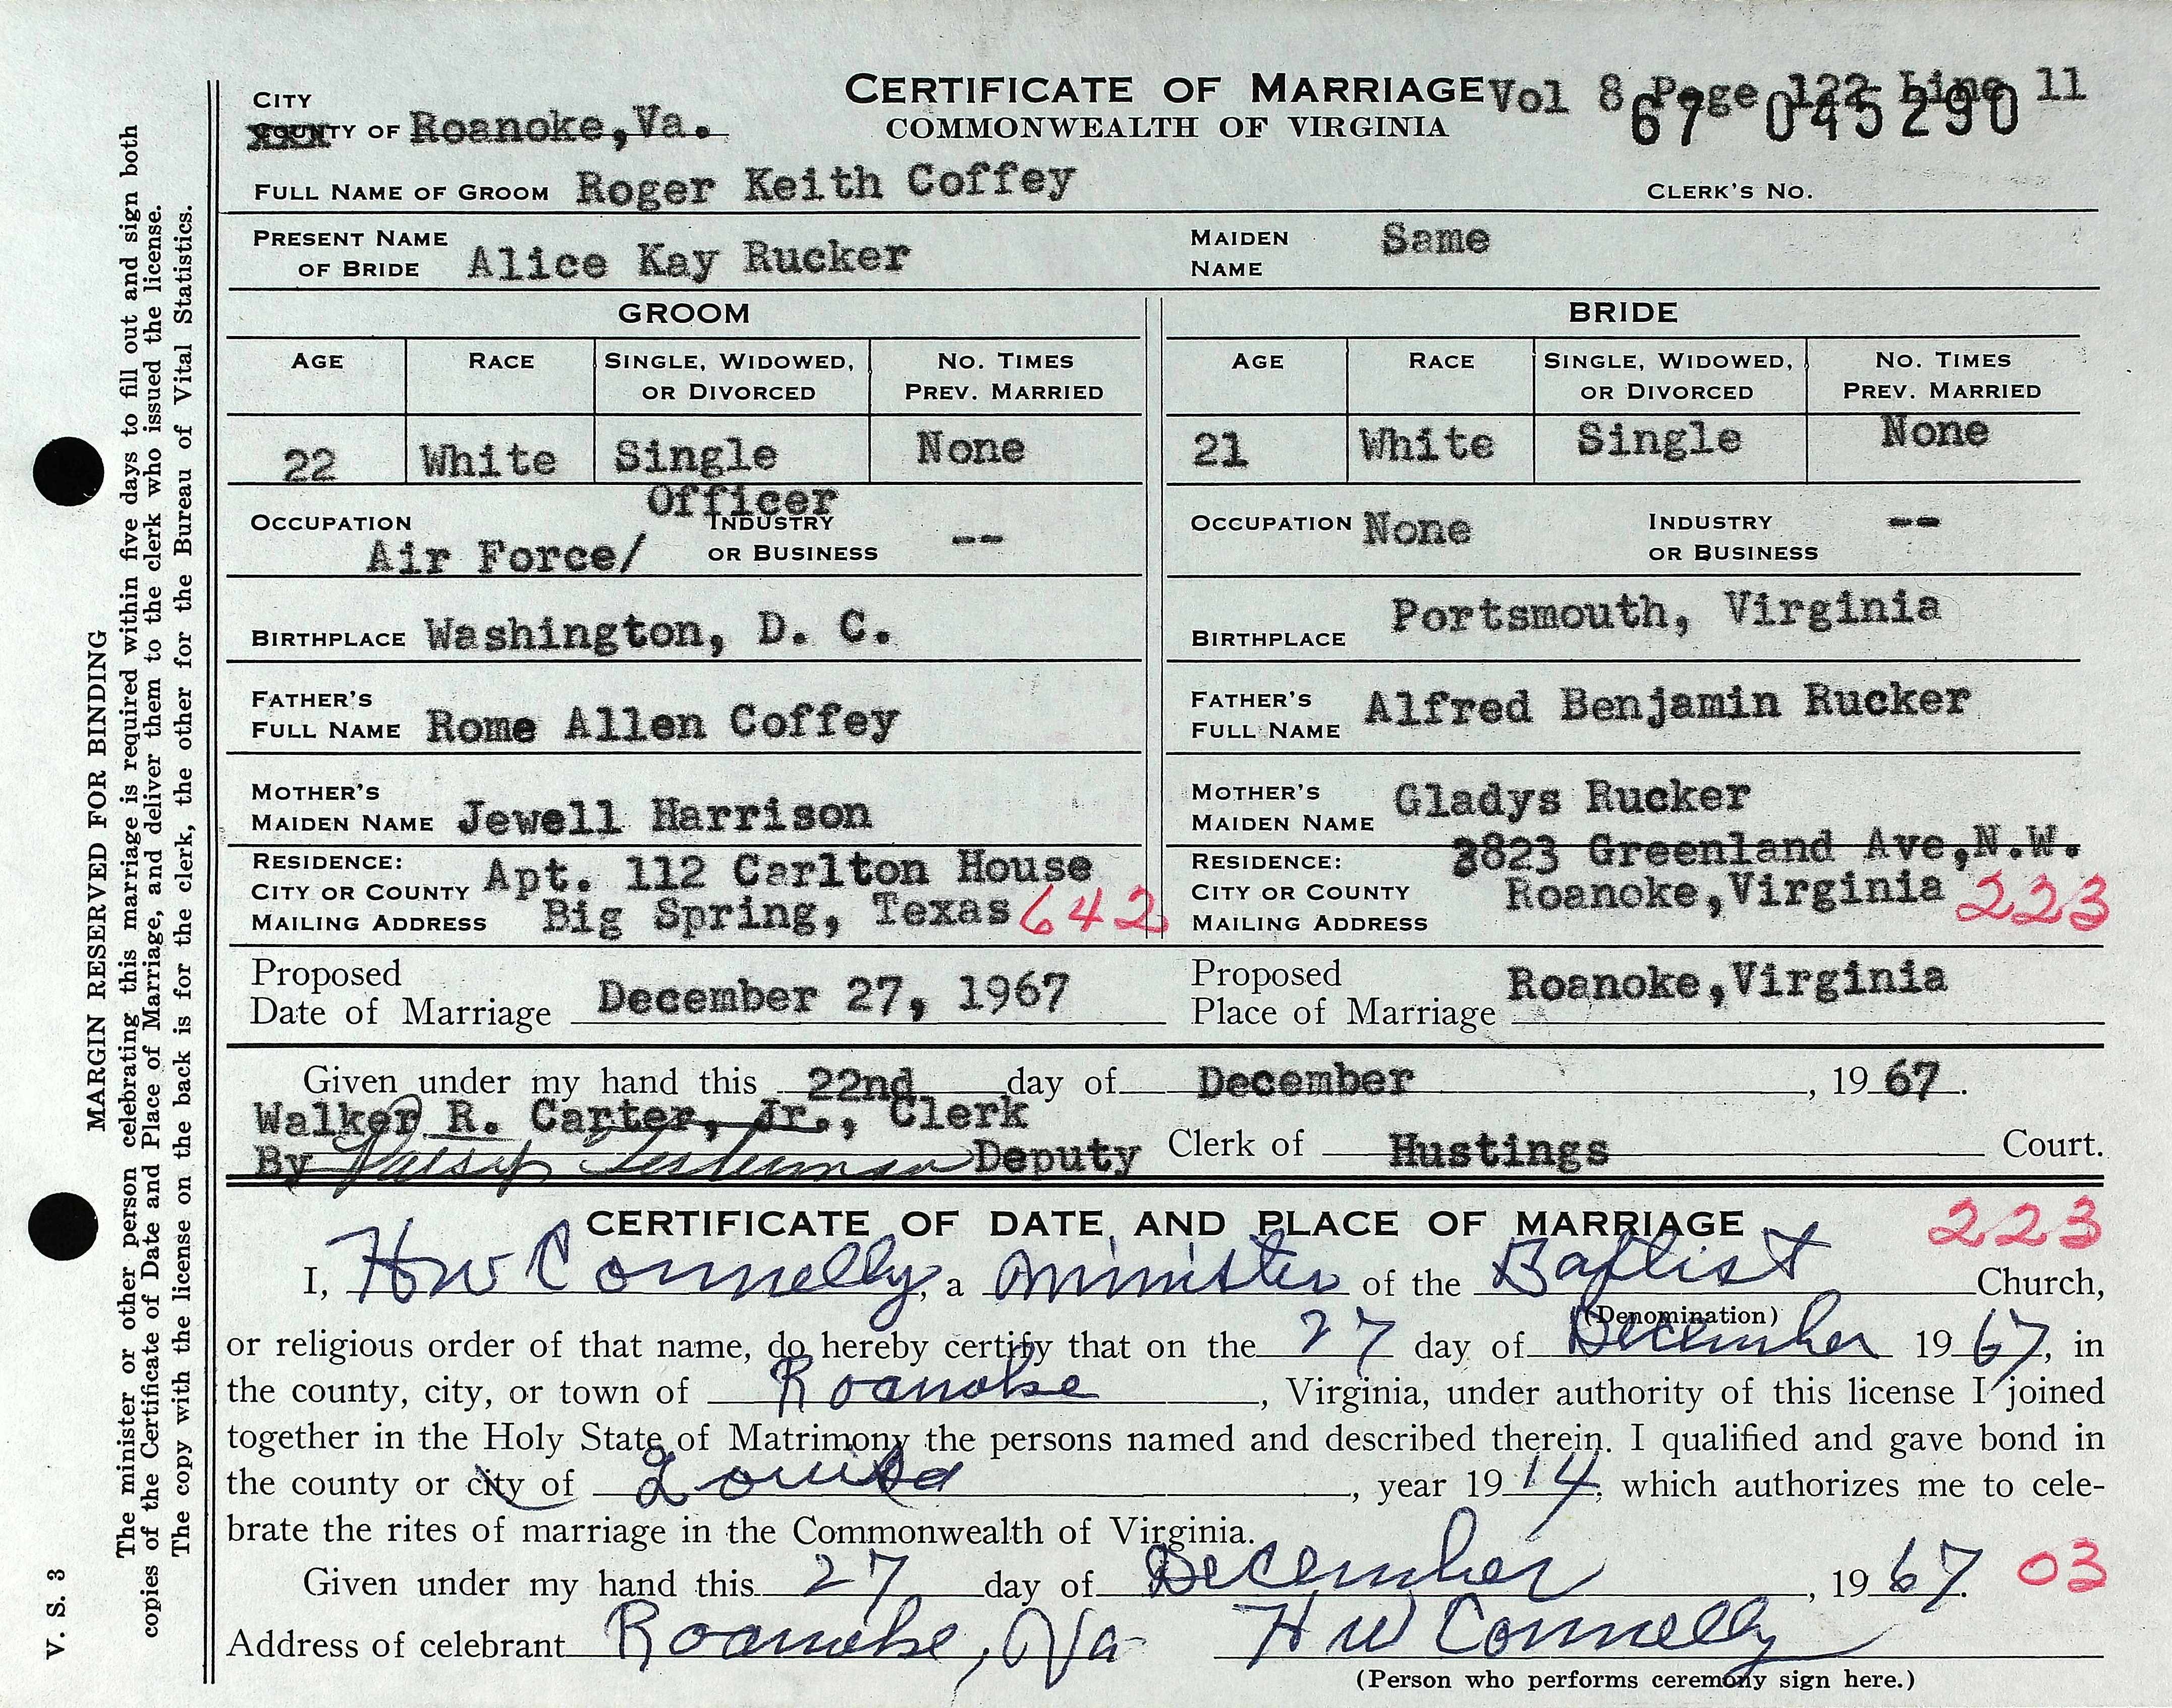 CERTIFICATE OF MARRIAGE Vol 8 Page 122 Line 11
67 045290
COMMONWEALTH OF VIRGINIA
CITY
COUNTY OF Roanoke,Va.
FULL NAME OF GROOM Roger Keith Coffey CLERK'S NO.
PRESENT NAME OF BRIDE Alice Kay Rucker MAIDEN NAME Same
GROOM BRIDE
AGE RACE SINGLE, WIDOWED, OR DIVORCED NO. TIMES PREV. MARRIED AGE RACE SINGLE, WIDOWED, OR DIVORCED NO. TIMES PREV. MARRIED
22 White Single None 21 White Single None
OCCUPATION Air Force/ Officer INDUSTRY OR BUSINESS -- OCCUPATION None INDUSTRY OR BUSINESS --
BIRTHPLACE Washington, D. C. BIRTHPLACE Portsmouth, Virginia
FATHER'S FULL NAME Rome Allen Coffey FATHER'S FULL NAME Alfred Benjamin Rucker
MOTHER'S MAIDEN NAME Jewell Harrison MOTHER'S MAIDEN NAME Gladys Rucker
RESIDENCE: CITY OR COUNTY MAILING ADDRESS Apt. 112 Carlton House Big Spring, Texas 642
RESIDENCE: CITY OR COUNTY MAILING ADDRESS 3823 Greenland Ave,N.W. Roanoke,Virginia 223
Proposed Date of Marriage December 27, 1967 Proposed Place of Marriage Roanoke,Virginia
Given under my hand this 22nd day of December, 1967.
Walker R. Carter, Jr., Clerk
By Deputy Clerk of Hustings Court.
CERTIFICATE OF DATE AND PLACE OF MARRIAGE 223
I, H W Connelly, a minister of the Baptist Church,
(Denomination)
or religious order of that name, do hereby certify that on the 27 day of December 1967, in
the county, city, or town of Roanoke, Virginia, under authority of this license I joined
together in the Holy State of Matrimony the persons named and described therein. I qualified and gave bond in
the county or city of Louisa, year 1914, which authorizes me to cele-
brate the rites of marriage in the Commonwealth of Virginia.
Given under my hand this 27 day of December, 1967. 03
Address of celebrant Roanoke, Va H W Connelly
(Person who performs ceremony sign here.)
MARGIN RESERVED FOR BINDING
The minister or other person celebrating this marriage is required within five days to fill out and sign both
copies of the Certificate of Date and Place of Marriage, and deliver them to the clerk who issued the license.
The copy with the license on the back is for the clerk, the other for the Bureau of Vital Statistics.
V. S. 3